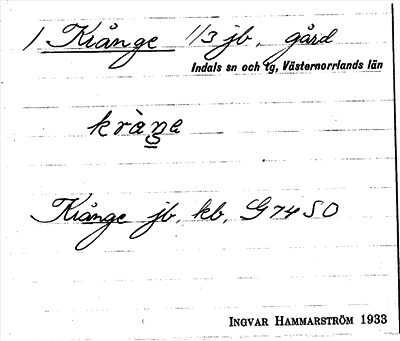 1 Krånge 1/3 jb, gård
Indals sn och tg, Västernorrlands län
Krånge jb, kb, G 74 SO
INGVAR HAMMARSTRÖM 1933